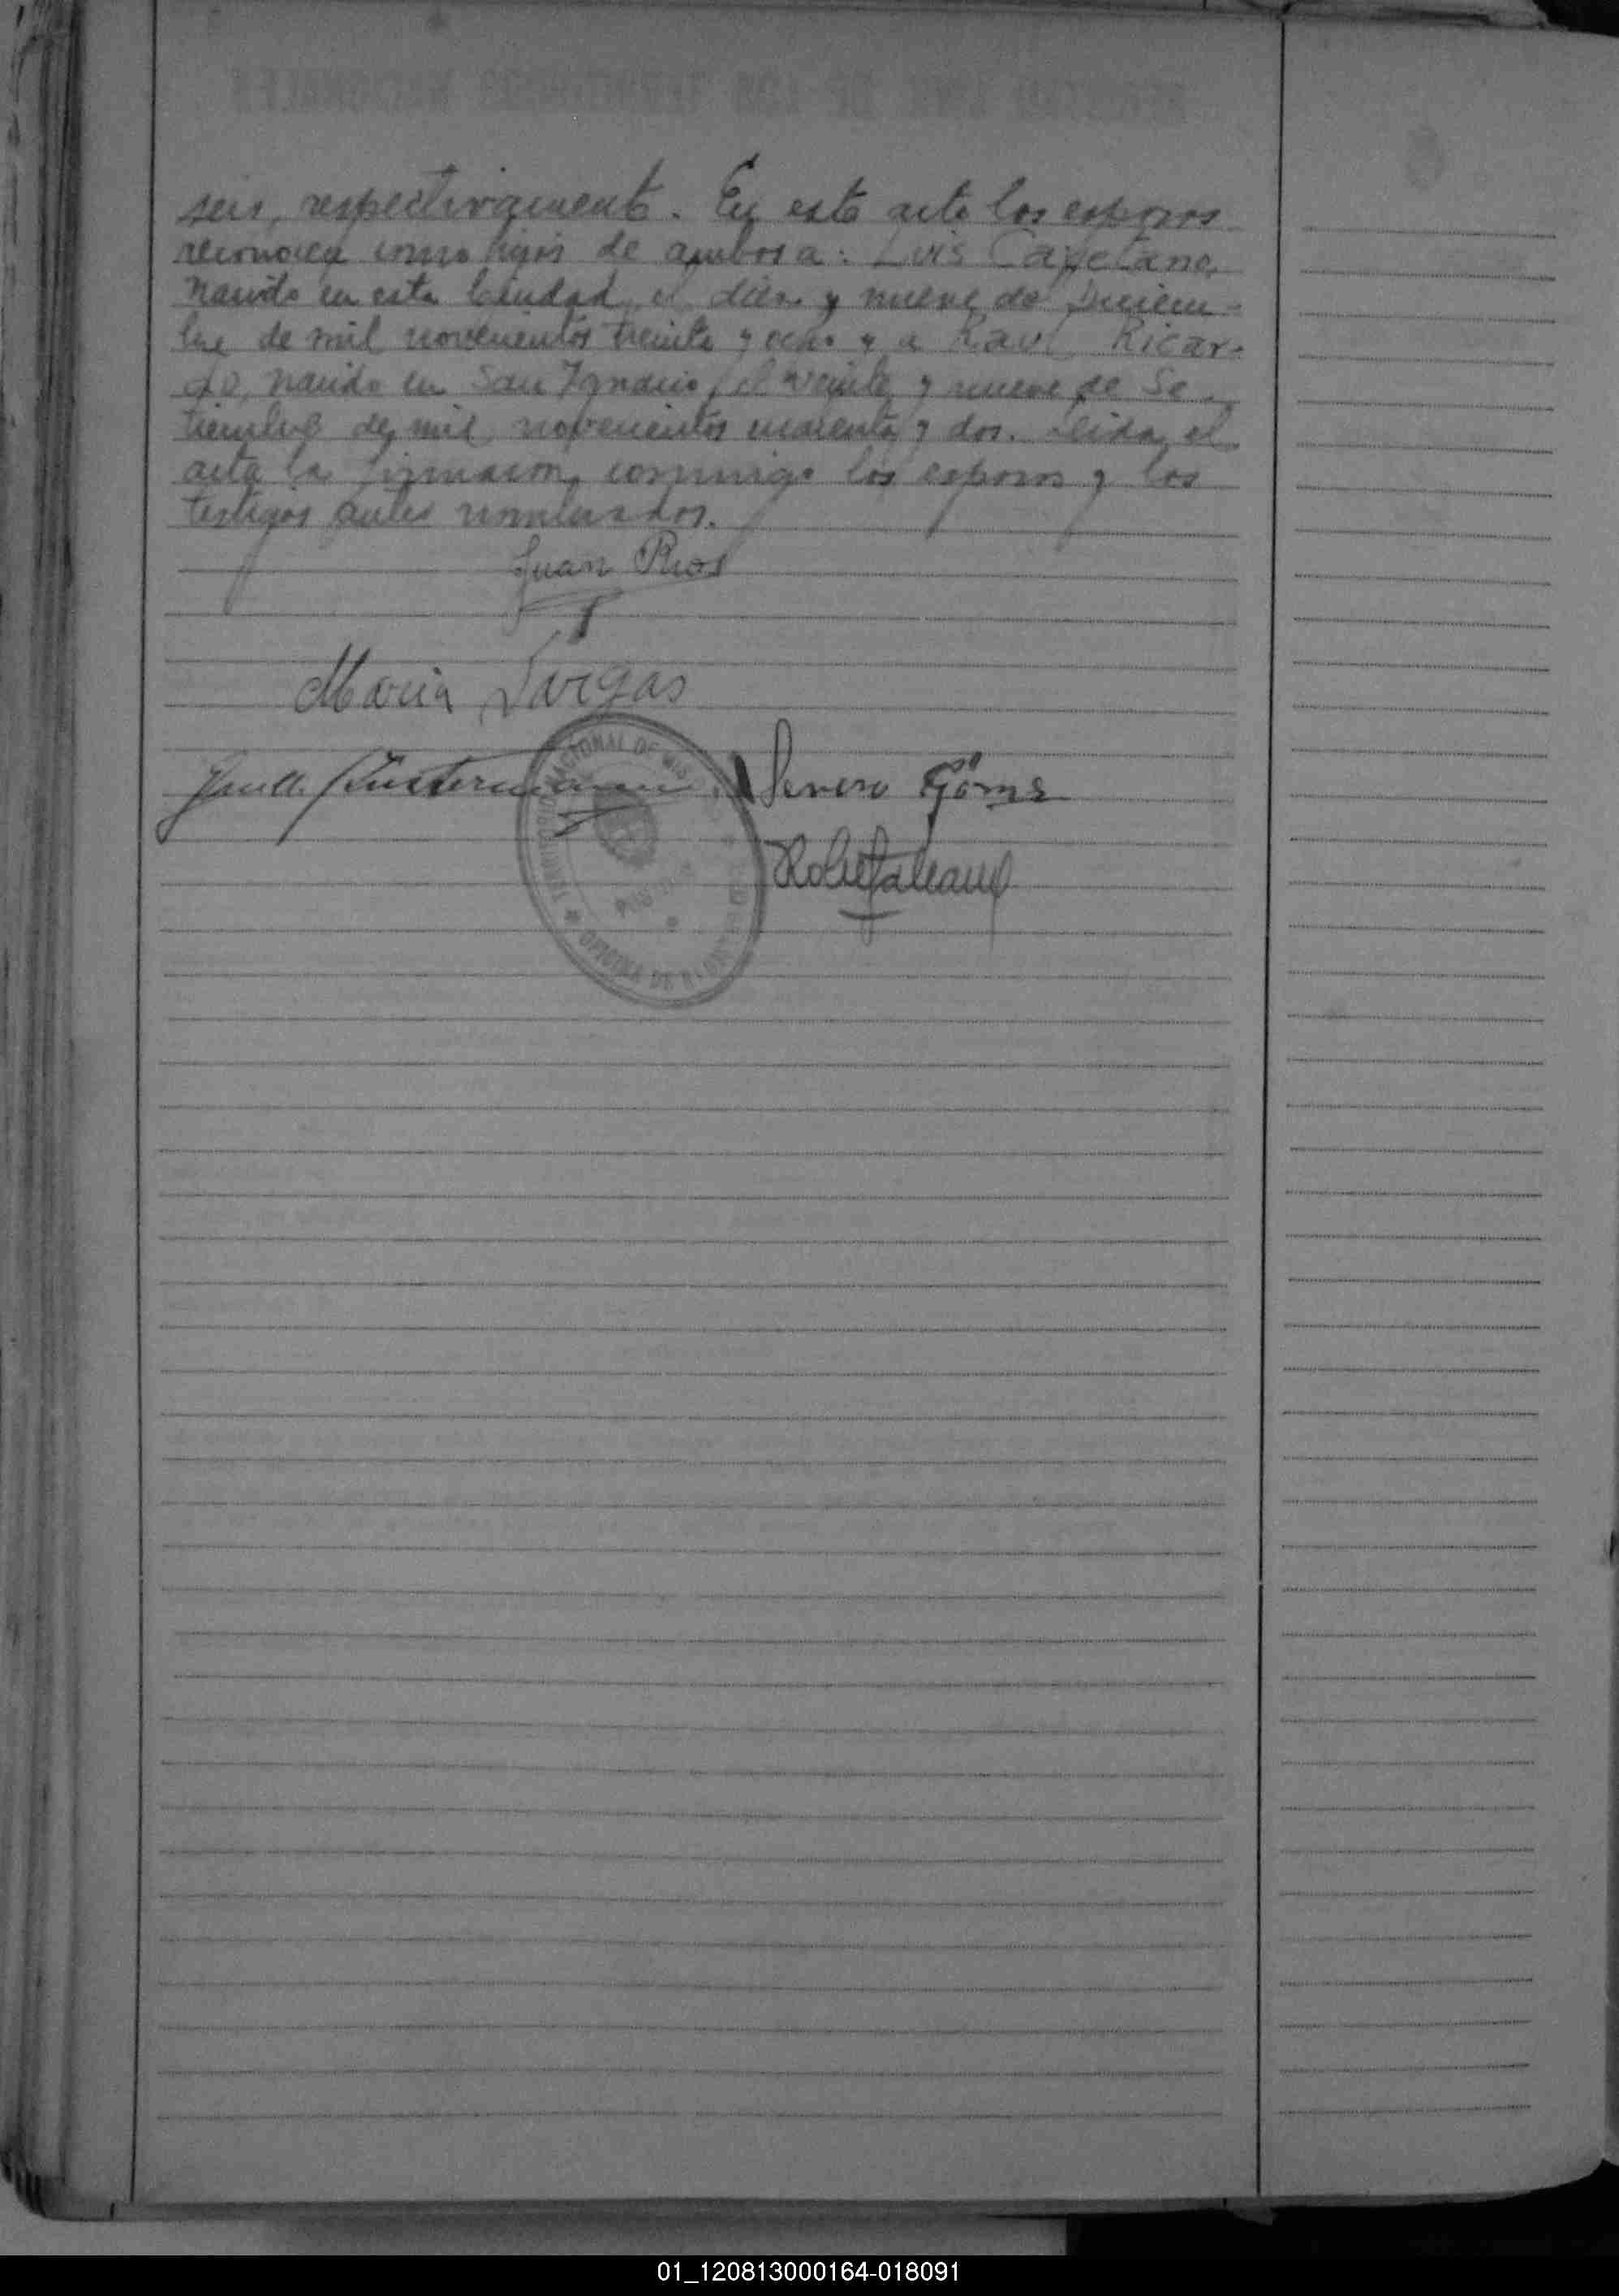 seis, respectivamente. En este acto los esposos
reconocen como hijos de ambos a: Luis Cayetano,
nacido en esta Ciudad, el diez y nueve de Diciem-
bre de mil novecientos treinta y ocho y a Raul Ricar-
do, nacido en San Ignacio, el veinte y nueve de Se-
tiembre de mil novecientos cuarenta y dos. Leida el
acta la firmaron, conmigo los esposos y los
testigos antes nombrados.
Juan Rios
Maria Vargas
Severo Gómez
TERRITORIO NACIONAL DE MISIONES
OFICINA DE
01_120813000164-018091